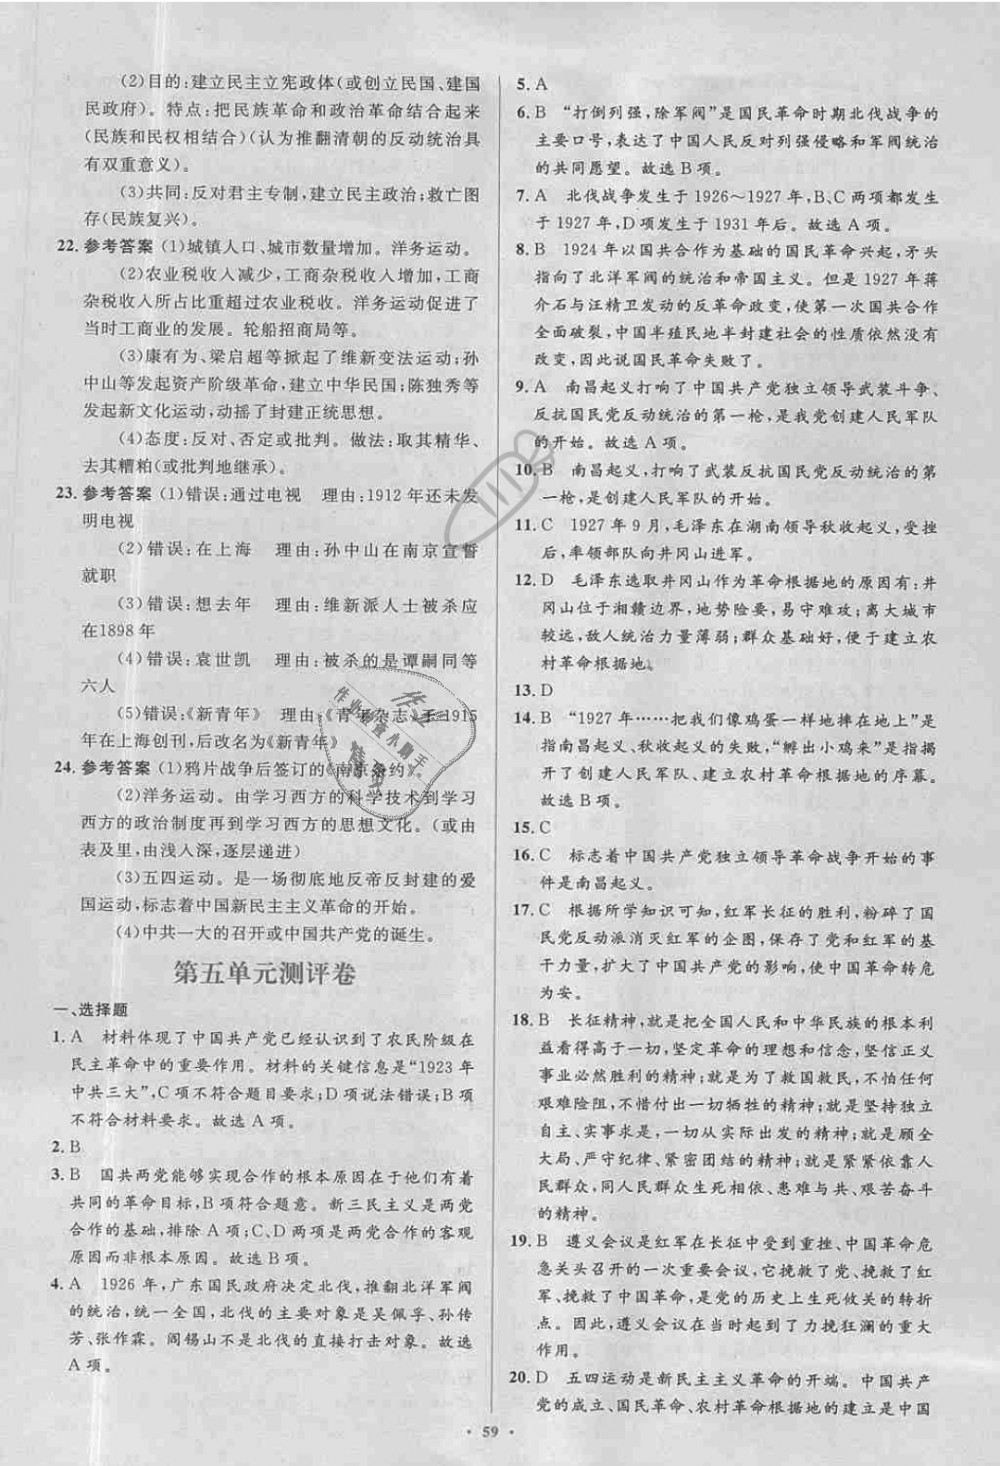 (2)目的:建立民主立宪政体(或创立民国、建国
民政府)。特点:把民族革命和政治革命结合起来
(民族和民权相结合)(认为推翻清朝的反动统治具
有双重意义)。
(3)共同:反对君主专制,建立民主政治;救亡图
存(民族复兴)。
22. 参考答案 (1)城镇人口、城市数量增加。洋务运动。
(2)农业税收入减少,工商杂税收入增加,工商
杂税收入所占比重超过农业税收。洋务运动促进了
当时工商业的发展。轮船招商局等。
(3)康有为、梁启超等掀起了维新变法运动;孙
中山等发起资产阶级革命,建立中华民国;陈独秀等
发起新文化运动,动摇了封建正统思想。
(4)态度:反对、否定或批判。做法:取其精华、
去其糟粕(或批判地继承)。
23. 参考答案 (1)错误:通过电视 理由:1912 年还未发
明电视
(2)错误:在上海 理由:孙中山在南京宣誓
就职
(3)错误:想去年 理由:维新派人士被杀应
在1898年
(4)错误:袁世凯 理由:被杀的是谭嗣同等
六人
(5)错误:《新青年》 理由:《青年杂志》于1915
年在上海创刊,后改名为《新青年》
24. 参考答案 (1)鸦片战争后签订的《南京条约》。
(2)洋务运动。由学习西方的科学技术到学习
西方的政治制度再到学习西方的思想文化。(或由
表及里,由浅入深,逐层递进)
(3)五四运动。是一场彻底地反帝反封建的爱
国运动,标志着中国新民主主义革命的开始。
(4)中共一大的召开或中国共产党的诞生。
第五单元测评卷
一、选择题
1. A 材料体现了中国共产党已经认识到了农民阶级在
民主革命中的重要作用。材料的关键信息是“1923年
中共三大”,C项不符合题目要求;D项说法错误;B项
不符合材料要求。故选 A 项。
2. B
3. B 国共两党能够实现合作的根本原因在于他们有着
共同的革命目标,B项符合题意。新三民主义是两党
合作的基础,排除 A 项;C、D 两项是两党合作的客观
原因而非根本原因。故选 B 项。
4. A 1926 年,广东国民政府决定北伐,推翻北洋军阀
的统治,统一全国,北伐的主要对象是吴佩孚、孙传
芳、张作霖。阎锡山不是北伐的直接打击对象。故选
A 项。
5. A
6. B “打倒列强,除军阀”是国民革命时期北伐战争的
主要口号,表达了中国人民反对列强侵略和军阀统治
的共同愿望。故选 B 项。
7. A 北伐战争发生于 1926~1927 年,B、C 两项都发生
于 1927 年,D 项发生于 1931 年后。故选 A 项。
8. B 1924 年以国共合作为基础的国民革命兴起,矛头
指向了北洋军阀的统治和帝国主义。但是 1927 年蒋
介石与汪精卫发动的反革命政变,使第一次国共合作
全面破裂,中国半殖民地半封建社会的性质依然没有
改变,因此说国民革命失败了。
9. A 南昌起义打响了中国共产党独立领导武装斗争、
反抗国民党反动统治的第一枪,是我党创建人民军队
的开始。故选 A 项。
10. B 南昌起义,打响了武装反抗国民党反动统治的第
一枪,是创建人民军队的开始。
11. C 1927 年 9 月,毛泽东在湖南领导秋收起义,受挫
后,率领部队向井冈山进军。
12. D 毛泽东选取井冈山作为革命根据地的原因有:井
冈山位于湘赣边界,地势险要,易守难攻;离大城市
较远,敌人统治力量薄弱;群众基础好,便于建立农
村革命根据地。
13. D
14. B “1927 年……把我们像鸡蛋一样地摔在地上”是
指南昌起义、秋收起义的失败,“孵出小鸡来”是指揭
开了创建人民军队、建立农村革命根据地的序幕。
故选 B 项。
15. C
16. C 标志着中国共产党独立领导革命战争开始的事
件是南昌起义。
17. C 根据所学知识可知,红军长征的胜利,粉碎了国
民党反动派消灭红军的企图,保存了党和红军的基
干力量,扩大了中国共产党的影响,使中国革命转危
为安。
18. B 长征精神,就是把全国人民和中华民族的根本利
益看得高于一切,坚定革命的理想和信念,坚信正义
事业必然胜利的精神;就是为了救国救民,不怕任何
艰难险阻,不惜付出一切牺牲的精神;就是坚持独立
自主、实事求是,一切从实际出发的精神;就是顾全
大局、严守纪律、紧密团结的精神;就是紧紧依靠人
民群众,同人民群众生死相依、患难与共、艰苦奋斗
的精神。
19. B 遵义会议是红军在长征中受到重挫、中国革命危
急关头召开的一次重要会议,它挽救了党、挽救了红
军、挽救了中国革命,是党的历史上生死攸关的转折
点。因此,遵义会议在当时起到了力挽狂澜的重大
作用。
20. D 五四运动是新民主主义革命的开端。中国共产
党的成立、国民革命、农村革命根据地的建立是中国
· 59 ·